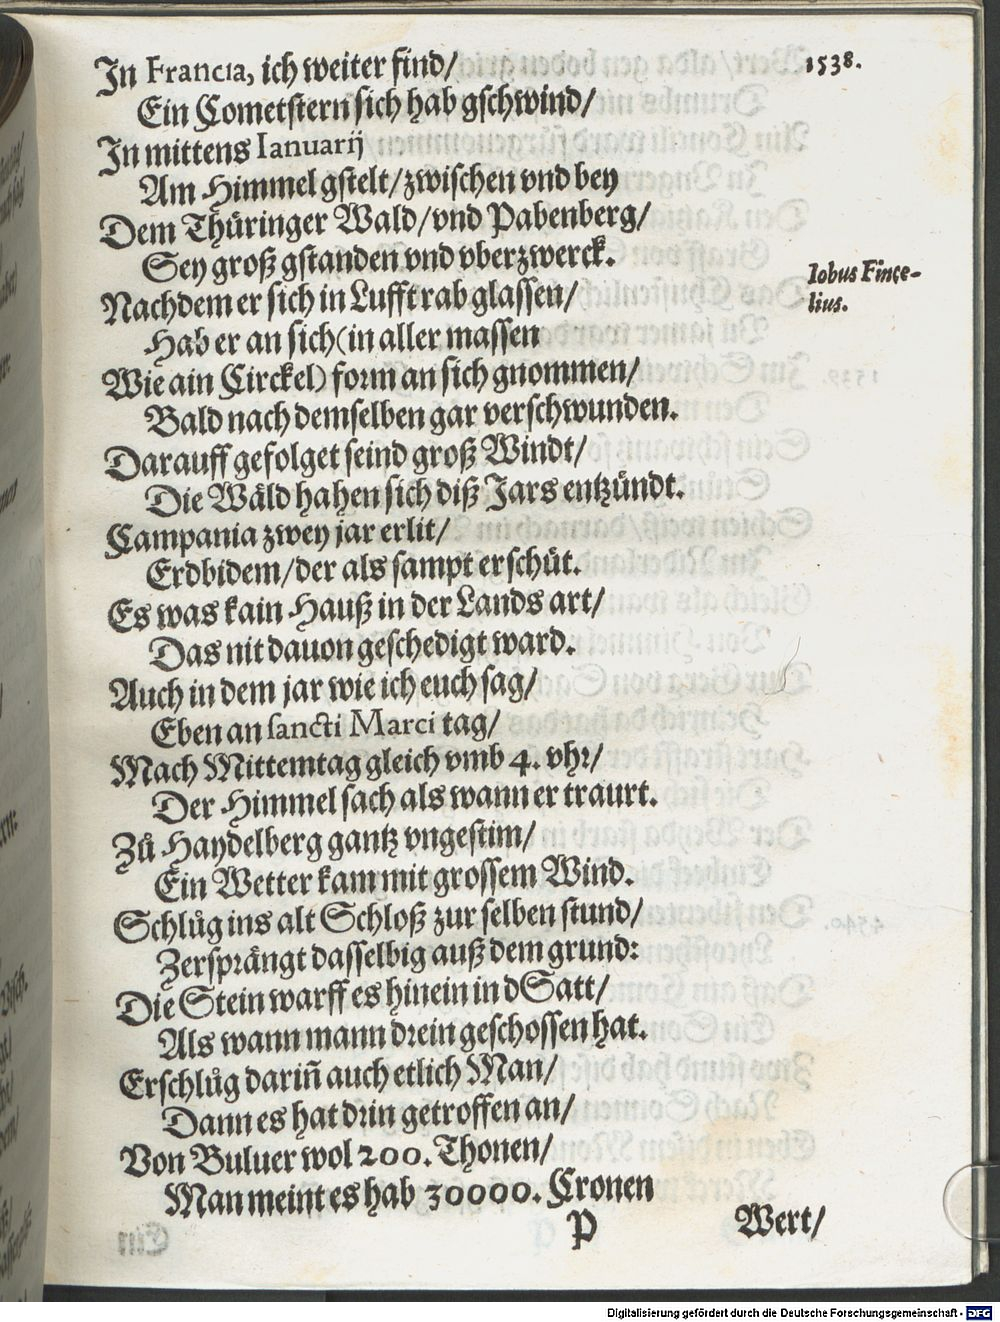 In Francia, ich weiter find/
1538.
Ein Cometstern sich hab gschwind/
In mittens Ianuarij
Am Himmel gstelt/zwischen vnd bey
Dem Thüringer Wald/vnd Pabenberg/
Sey groß gstanden vnd vberzwerck.
Iobus Finçe-
lius.
Nachdem er sich in Lufft rab glassen/
Hab er an sich (in aller massen
Wie ain Circkel) form an sich gnommen/
Bald nach demselben gar verschwunden.
Darauff gefolget seind groß Windt/
Die Wäld hahen sich diß Jars entzündt.
Campania zwey jar erlit/
Erdbidem/der als sampt erschüt.
Es was kain Hauß in der Lands art/
Das nit dauon geschedigt ward.
Auch in dem jar wie ich euch sag/
Eben an sancti Marci tag/
Nach Mittemtag gleich vmb 4. vhr/
Der Himmel sach als wann er traurt.
Zů Haydelberg gantz vngestim/
Ein Wetter kam mit grossem Wind.
Schlůg ins alt Schloß zur selben stund/
Zersprängt dasselbig auß dem grund:
Die Stein warff es hinein in dSatt/
Als wann mann drein geschossen hat.
Erschlůg dariñ auch etlich Man/
Dann es hat drin getroffen an/
Von Buluer wol 200. Thonen/
Man meint es hab 30000. Cronen
P
Wert/
Digitalisierung gefördert durch die Deutsche Forschungsgemeinschaft - DFG